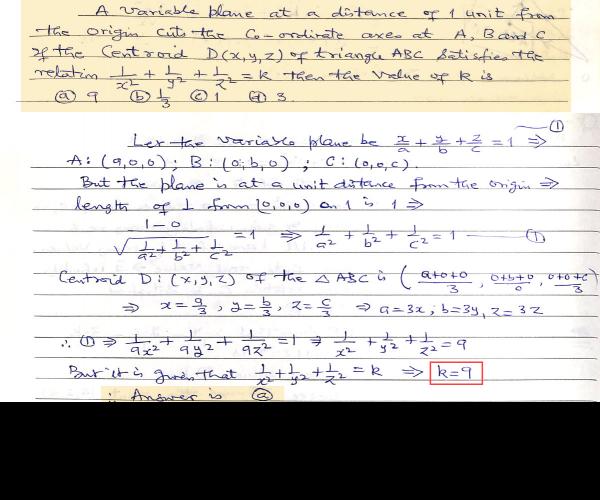 A variable plane at a distance of 1 unit from
the origin cuts the Co-ordinate axes at A, B and C
If the Centroid D(x,y,z) of triangle ABC satisfies the
relation 1/x² + 1/y² + 1/z² = k then the value of k is
(a) 9 (b) 1/3 (c) 1 (d) 3.
Let the variable plane be x/a + y/b + z/c = 1 —① ⇒
A: (a,0,0); B: (0,b,0); C: (0,0,c).
But the plane is at a unit distance from the origin ⇒
length of ⊥ from (0,0,0) on 1 is 1 ⇒
1-0/√(1/a² + 1/b² + 1/c²) = 1 ⇒ 1/a² + 1/b² + 1/c² = 1 — ①
Centroid D: (x,y,z) of the △ ABC is (a+0+0/3, 0+b+0/0, 0+0+c/3)
⇒ x = a/3, y = b/3, z = c/3 ⇒ a=3x; b=3y, z=3z
∴ ① ⇒ 1/9x² + 1/9y² + 1/9z² = 1 ⇒ 1/x² + 1/y² + 1/z² = 9
But it is given that 1/x² + 1/y² + 1/z² = k ⇒ k=9
∴ Answer is (a)